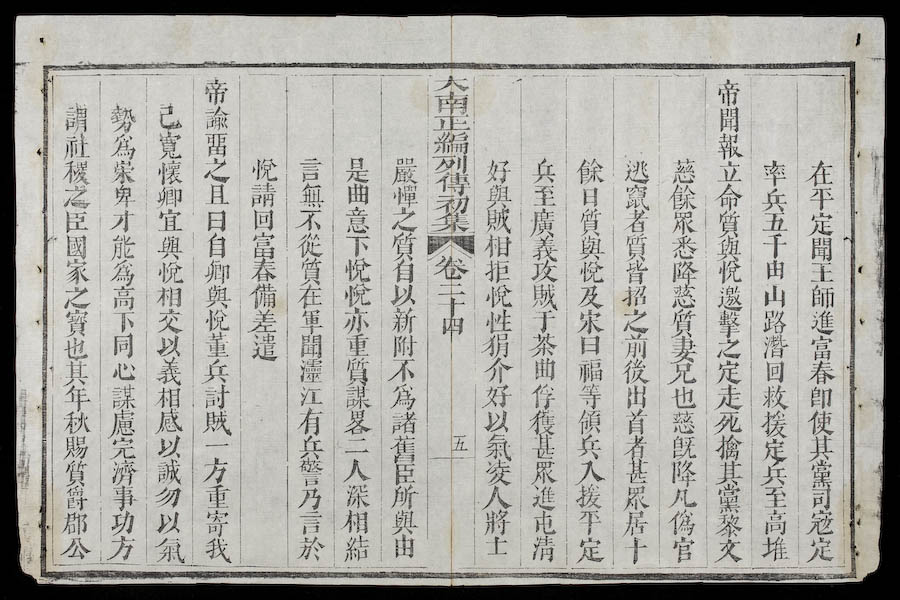 在平定聞王師進富春卽使其黨司寇定
率兵五千由山路潛回救援定兵至高堆
帝聞報立命質與悅邀擊之定走死擒其黨黎文
慈餘眾悉降慈質妻兄也慈旣降凡僞官
逃竄者質皆招之前後出首者甚眾居十
餘日質與悅及宋曰福等領兵入援平定
兵至廣義攻賊于茶曲俘獲甚眾進屯清
好與賊相拒悅性狷介好以氣凌人將士
大南正編列傳初集 卷三十四 五
嚴憚之質自以新附不爲諸舊臣所與由
是曲意下悅悅亦重質謀畧二人深相結
言無不從質在軍聞灅江有兵警乃言於
悅請回富春備差遣
帝諭畱之且曰自卿與悅董兵討賊一方重寄我
己寬懷卿宜與悅相交以義相感以誠勿以氣
勢爲崇卑才能爲高下同心謀慮完濟事功方
謂社稷之臣國家之寶也其年秋賜質爵郡公